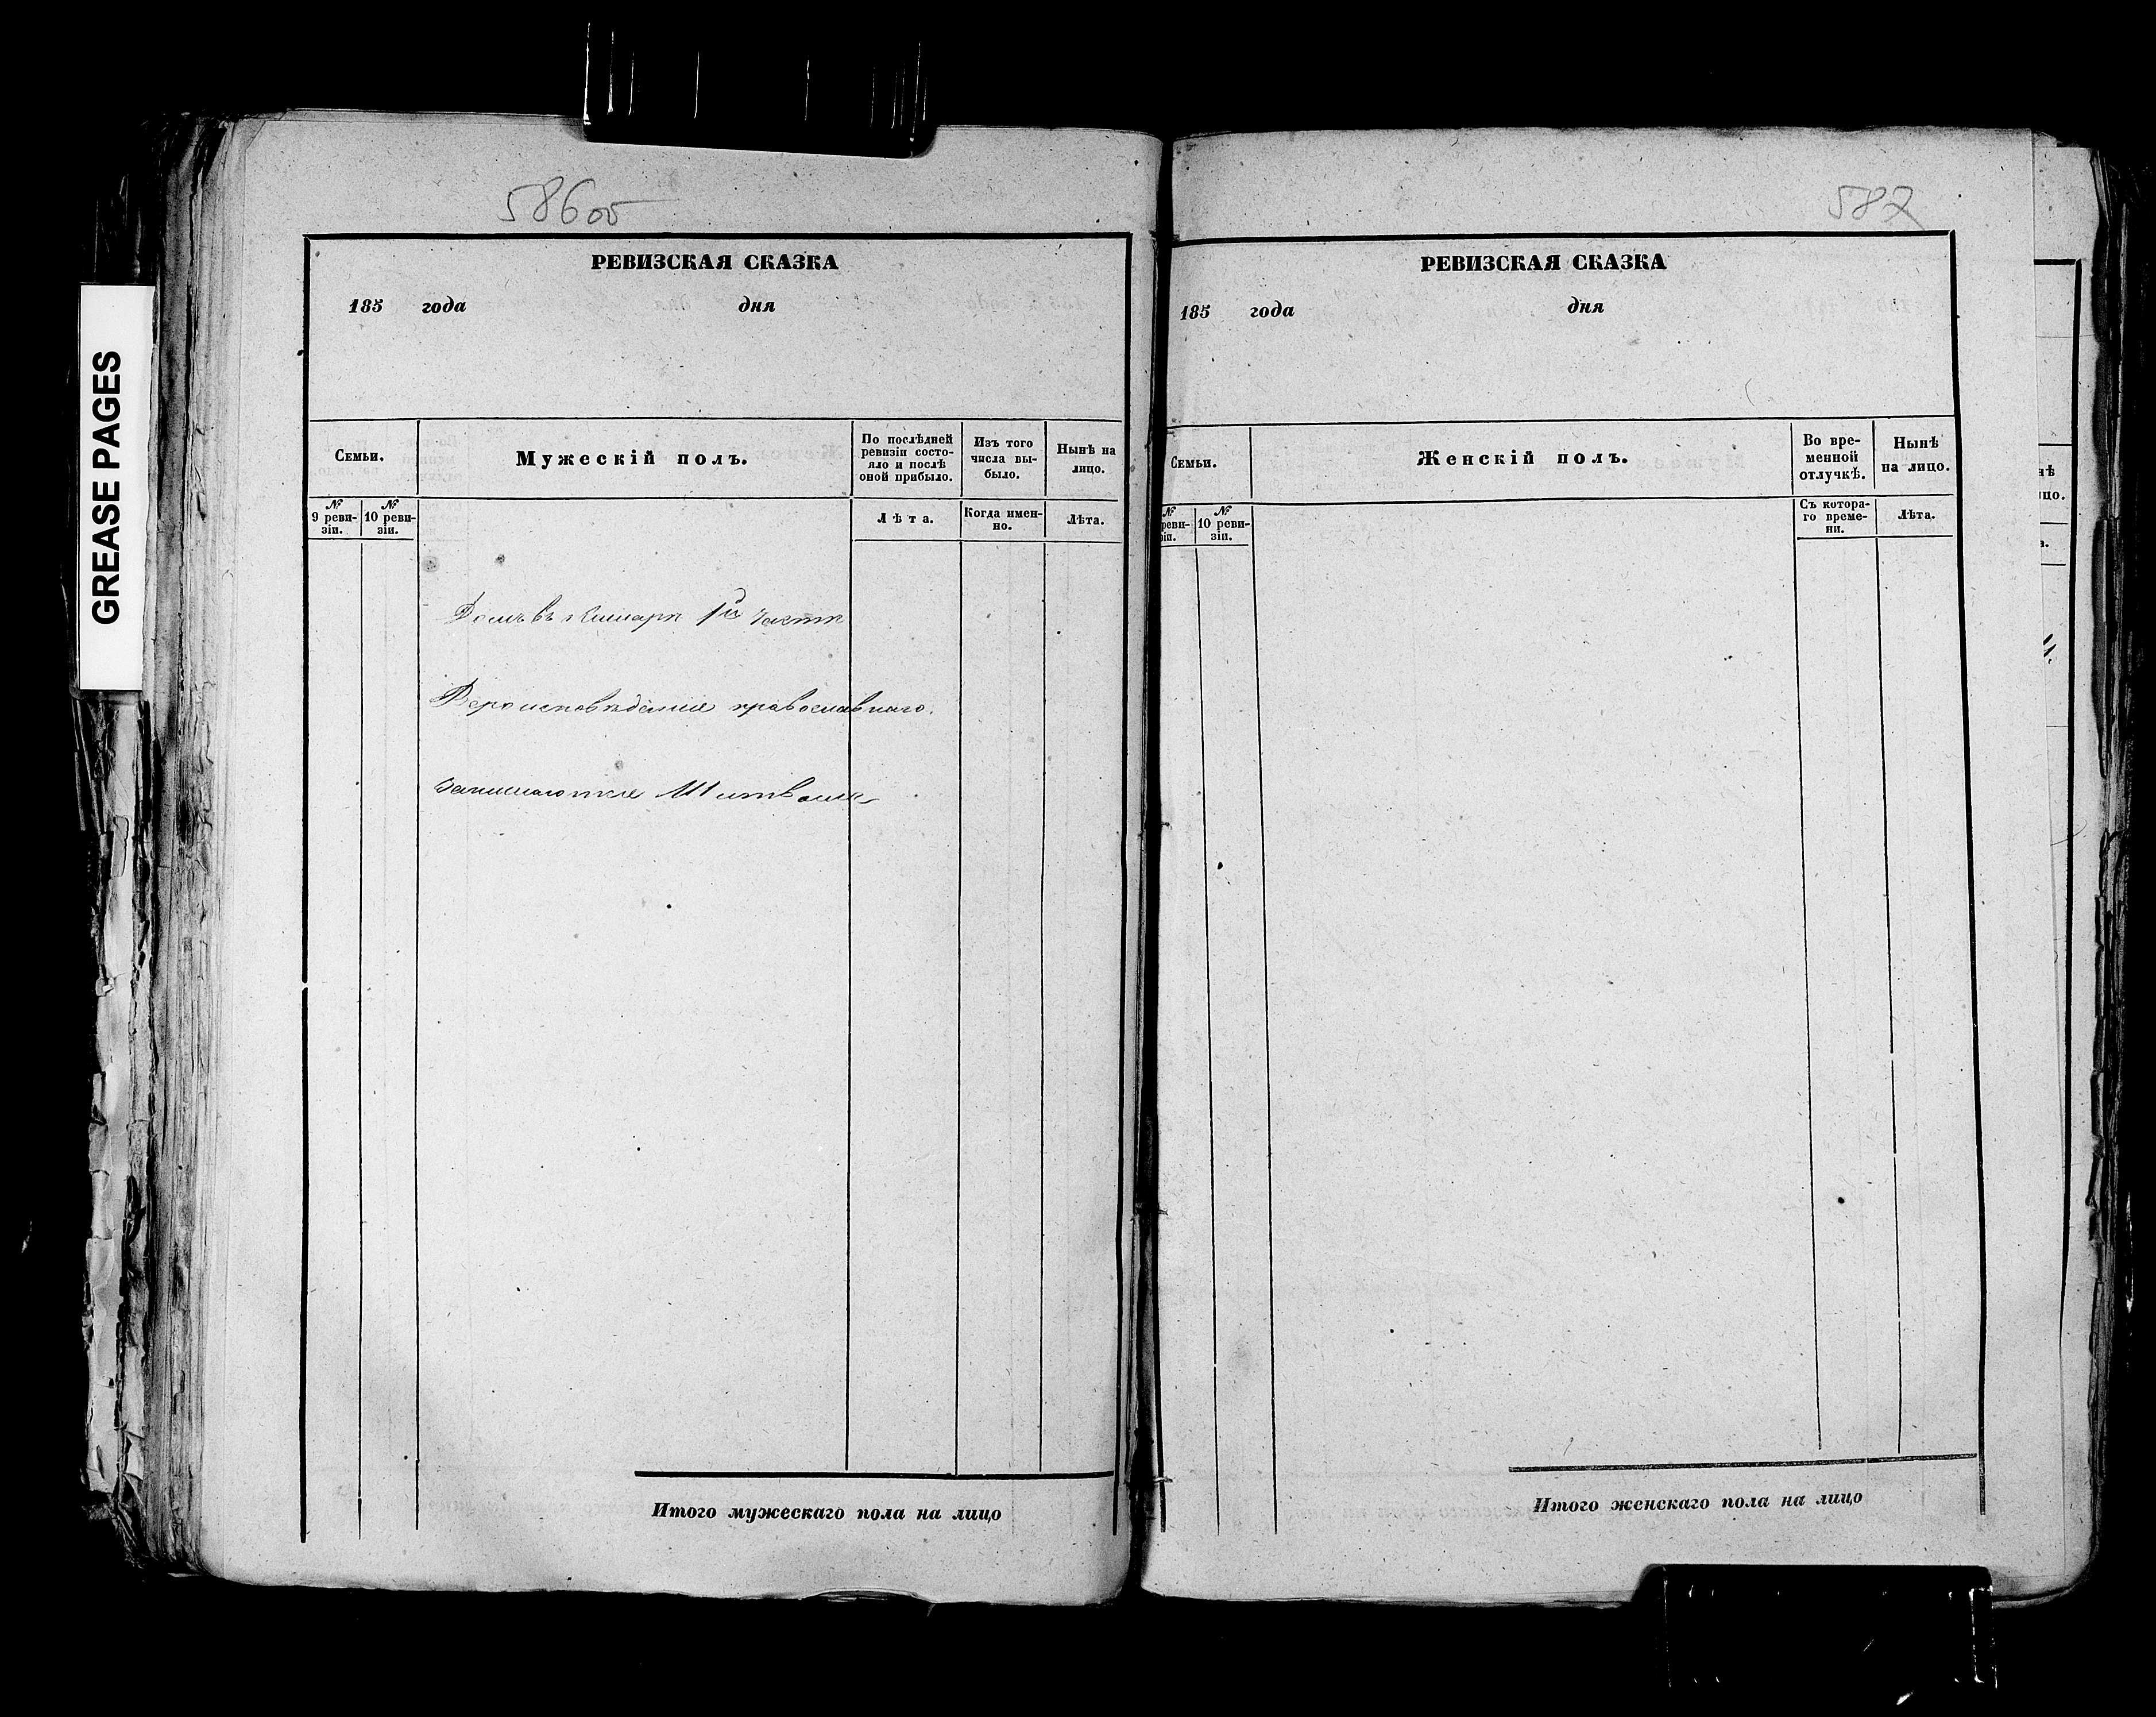 GREASE PAGES
586об
РЕВИЗСКАЯ СКАЗКА
185 года дня
Семьи.
Мужескій полъ.
По послѣдней ревизіи состо-
яло и послѣ
оной прибыло.
Изъ того
числа вы-
было.
Нынѣ на
лицо.
№
9 реви-
зіи.
№
10 реви-
зіи.
Лѣта.
Когда имен-
но.
Лѣта.
Домъ въ 1й части
Вероисповѣданія православнаго.
занимаются
Итого мужескаго пола на лицо
587
РЕВИЗСКАЯ СКАЗКА
185 года дня
Семьи.
Женскій полъ.
Во вре-
менной
отлучкѣ.
Нынѣ
на лицо.
№
реви-
зіи.
№
10 реви-
зіи.
Съ котора-
го време-
ни.
Лѣта.
Итого женскаго пола на лицо